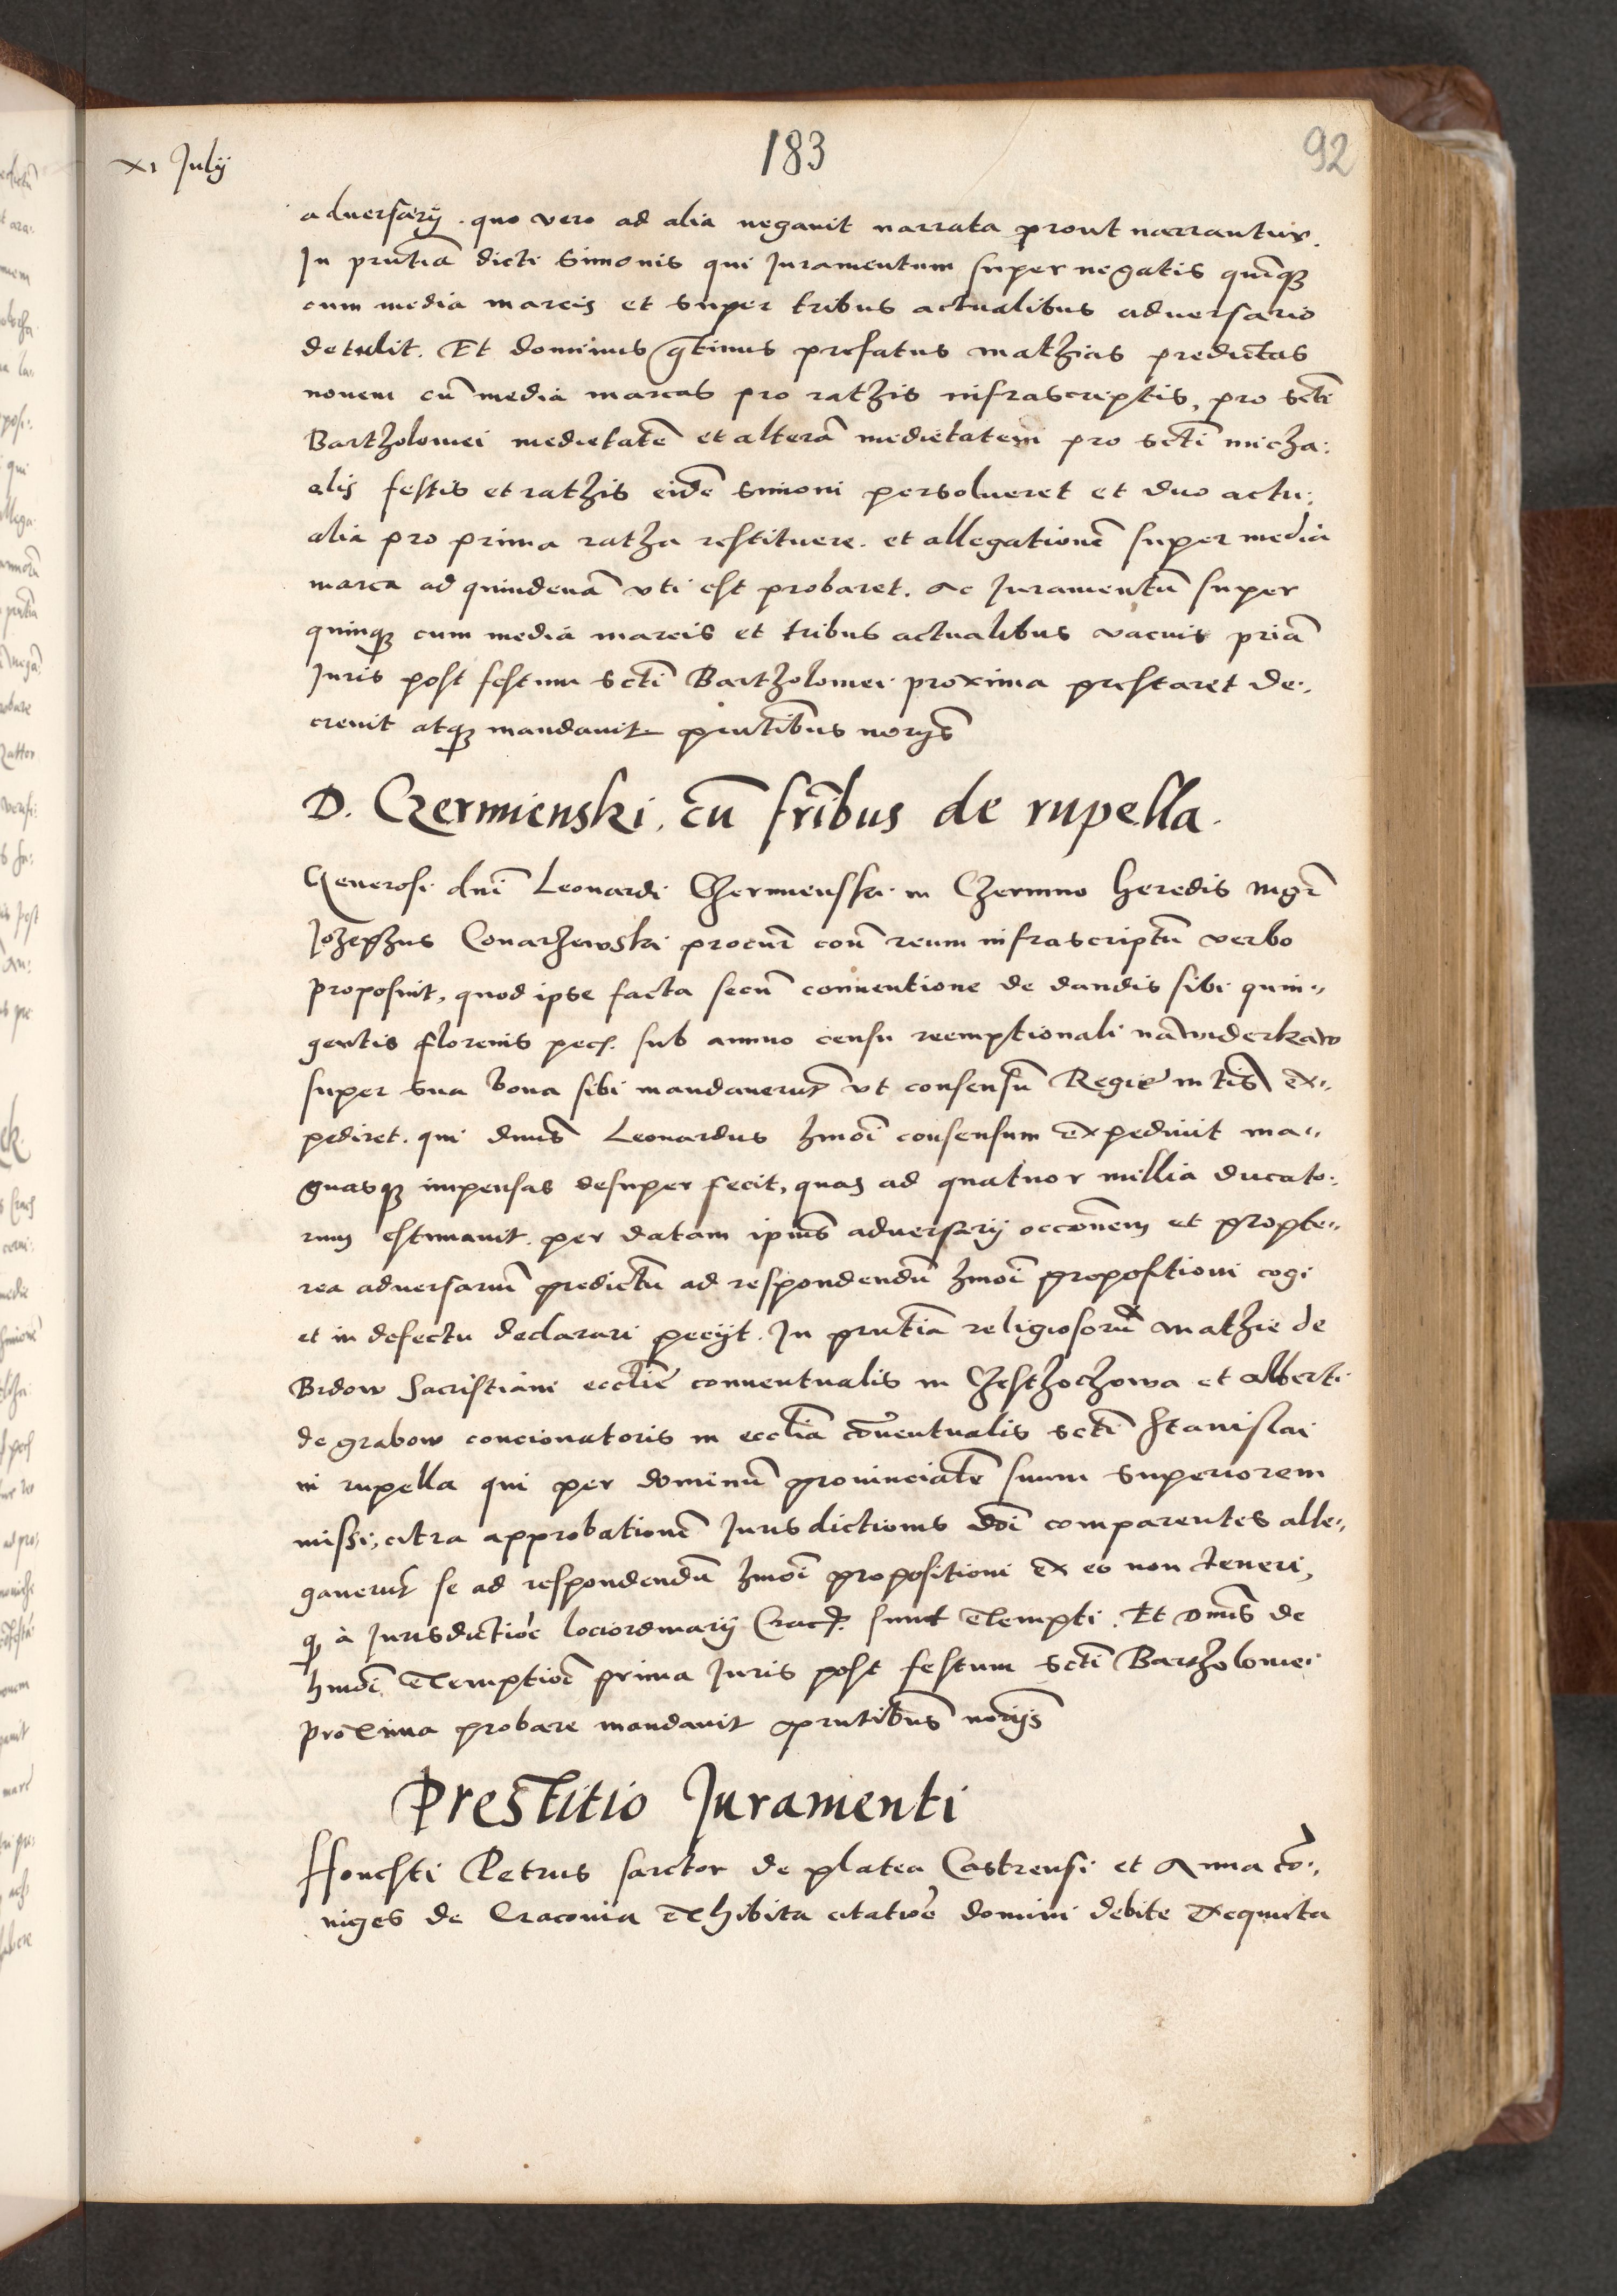 183
92
xi Julij
adversarij. quo vero ad alia negauit narrata prout narrantur.
In pruntiã dicti Simonis qui Juramentum super negatis quinqȝ
cum media marcis et super tribus actualibus adversario
detulit. Et dominus prefatus mathias predictas
nouem cũ media marcas pro rathis infrascriptis, pro scti
Bartholomei medietatẽ et alterã medietatem pro scti micha:
elis festis et rathis eidẽ simoni persolueret et duo actu:
alia pro prima ratha restituere. et allegationẽ super media
marca ad quindenã vti est probaret. Ac Juramentũ super
quinqȝ cum media marcis et tribus actualibus vacuis primã
Juris post festum scti Bartholomei proxima prestaret de:
creuit atqȝ mandauit prntibus norijs
D. Czermienski. cũ fribus de rupella.
Generosi dni Leonardi Czermienski in Czermno heredis mgr
Jozephus Conarzewski procur con reum infrascriptũ verbo
proposuit, quod ipse facta secũ conuentione de dandis sibi quin:
gentis florenis pecs. sub annuo censu reemptionali na widerkaw
super sua bona sibi mandauerunt vt consensũ Regie mtis ex:
pediret. qui dnus Leonardus hmoi consensum expediuit ma:
gnasqȝ impensas desuper fecit, quas ad quatuor millia ducato:
rum estimauit per datam ipius adversarij occonem et propte:
rea adversariũ predictũ ad respondendũ hmoi propositioni cogi
et in defectu declarari pecijt. In pruntiã religiosorũ mathie de
Bdow Sacristiani ecclie conuentualis in Czesthochowa et alberti
de grabow concionatoris in ecclia cõuentualis scti Stanislai
in rupella qui per dominũ prouincialẽ suum superiorem
missi, citra approbationẽ Jurisdictionis doi comparentes alle:
gauerunt se ad respondendũ hmoi propositioni ex eo non teneri,
qȝ à Jurisdictiõe lociordinarij Crac. sunt exempti. Et Dnus de
hmoi exemptiõe prima Juris post festum scti Bartholomei
proxima probare mandauit prntibus norijs
Prestitio Juramenti
Honesti Petrus sarctor de platea Castrensi et Anna cõ:
niges de Cracouia exhibita citatiõe domini debite exequuta